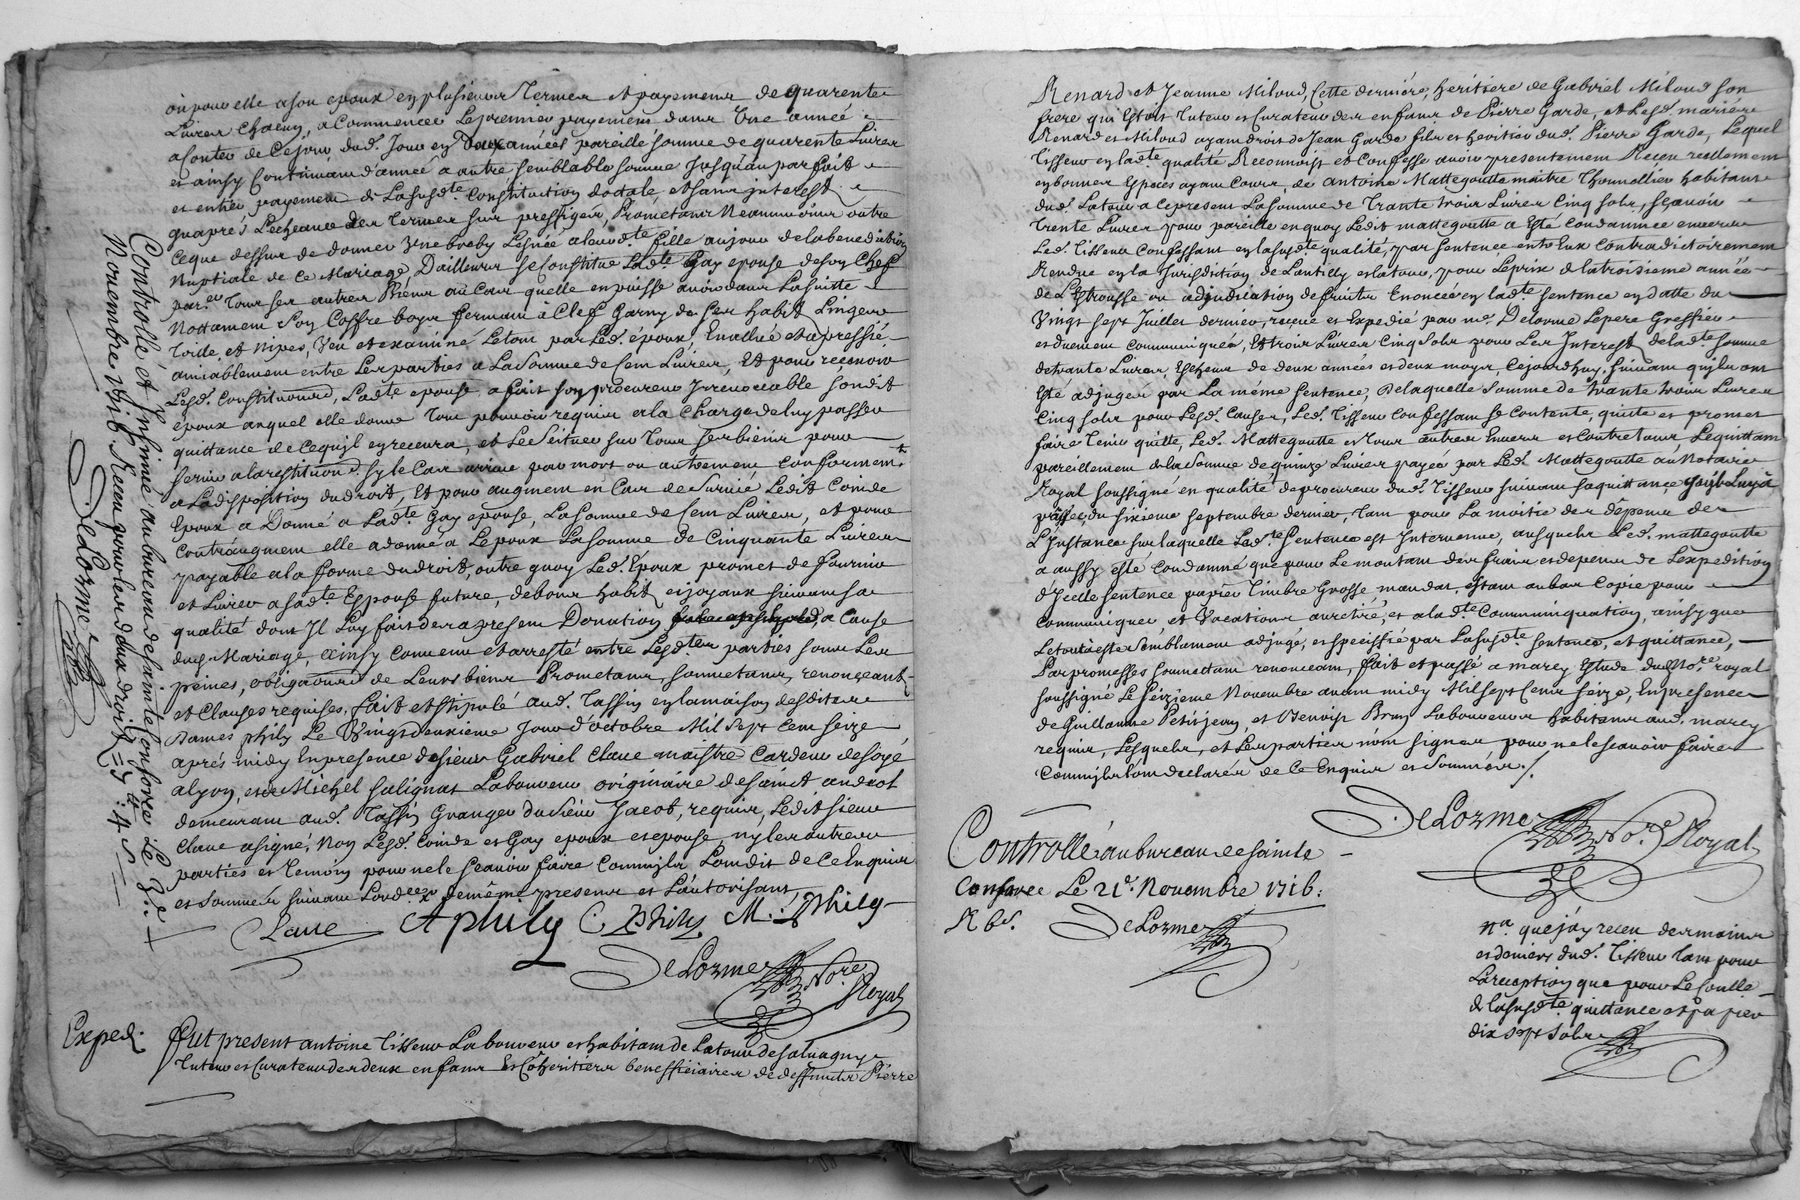 ou pour elle a son epoux en plusieurs Termes et payemens de quarente
Livres Chacun, a Commencer Le premier payement dans Une année
a Conter de Ce jour dud. Jour en Deux années pareille somme de quarente Livres
et ainsy Continuant d'année a autre semblable somme Jusqu'au parfait
et entier payement de La susd.te Constitution dotale, et sans interest
qu'aprés L'echeance des Termes sus prefigés, Promettans Neanmoins outre
Ceque dessus de donner Une breby Lesnée a lad.te fille au jour de la benediction
Nuptiale de Ce Mariage, D'ailleurs se Constitue Lad.te Gay epouse de son Chef
par.er Tous ses autres Biens au Cas quelle en puisse avoir dans La suitte
Nottament Son Coffre boyx fermant a Clef Garny de ses habits Linges
Toile, et Nipes, Veu et examiné Le tout par Led. époux, Evallué et apressié
amiablement entre Les parties a La Somme de Cent Livres, Et pour recevoir
Lesd. Constitutions, Lad.te epouse a fait son procureur Irrevocable sondit
époux auquel elle donne Tout pouvoir requis a la Charge de luy passer
quittance de Cequil en recevra, et Les Seitner sur Tous ses biens pour
servir a la restitution sy le Cas arrive par mort ou autrement Conformem.t
a La disposition du droit, Et pour augment en Cas de Survie Ledit Coinde
Epoux a Donné a Lad.te Gay epouse, La somme de Cent Livres, et pour
Contraugment elle a donné a Lepoux La Somme de Cinquante Livres
payable a la forme du droit, outre quoy Led. Epoux promet de fournir
et Livrer a sad.te Espouse future, des bons habits et joyaux suivant sa
qualité dont Il Luy fait des a present Donation a Cause
dud. Mariage, Ainsy Convenu et arresté entre Lesd.tes parties sous Les
peines, obligations de Leurs biens Promettans, soumettans, renonçeants
et Clauses requises, fait et stipulé aud. Tassin en la maison desdites
Dames phily Le Vingt deuxième Jour d'octobre Mil Sept Cent Seize
aprés midy En presence de sieur Gabriel Claue maistre Cardeur de soye
a lyon, et de Michel Salignat Laboureur originaire de saint andeol
demeurant aud. Tassin Granger du sieur Jacob, requis, Ledit sieur
Claue a signé, Non Lesd. Coinde et Gay epoux et epouse, ny les autres
parties et temoin pour ne le sçavoir faire Comme ils L'ont dit de Ce Enquis
et Sommés suivant L'ord.ce de même presens et L'autorisant
Claue APhily C Phily M : Phily
DeLorme No.re Royal
Controllé et Insinué au bureau de sainte Confore Le 3.e
Novembre 1716 Receu pour les deux droits = 9 : 4 s
DeLorme
Exped.
Fut present antoine Tisseur Laboureur et habitant de Latour de salvagny
Tuteur et Curateur des deux enfans Et Cõheritiers beneffiçiaires de deffunts Pierre
Renard et Jeanne Miloud, Cette derniére, heritiére de Gabriel Miloud son
frere qui Estoit Tuteur et Curateur des enfans de Pierre Garde, et Lesd. mariés
Renard et Miloud ayant droit de Jean Garde fils et heritier dud. Pierre Garde, Lequel
Tisseur en lad.te qualité Reconnoist et Confesse avoir presentement Receu reellement
en bonnes Espèces ayant Cours, de antoine Mattegoutte maître Thonnellier habitant
dud. Latour a Ce present La somme de Trante trois Livres Cinq sols, sçavoir
Trente Livres pour pareille en quoy Ledit mattegoutte a Esté Condamné envers
Led. Tisseur Confessant en lasusd.te qualité, par Sentence entr'Eux Contradictoirement
Rendue en la Jurisdiction de Lantilly et latour, pour Le prix de la troisieme année
de L'Etrousse ou adjudication des fruits Enoncée en lad.te sentence en datte du
Vingt sept Juillet dernier, reçue et Expedié par m.e Delorme Lepere Greffier
et duement Communiquée, Et trois Livres Cinq sols pour Les Interest de lad.te somme
de trante Livres, Escheus de deux années et deux moys, Cejourdhuy, suivant quils ont
Esté adjugés par La même sentence, De laquelle Somme de trante trois Livres
Cinq sols pour Lesd. Causes, Led. Tisseur Confessant se Contente, quitte et promet
faire Tenir quitte, Led. Mattegoutte et tous autres Envers et Contre tous, Le quittant
pareillement de la Somme de quinze Livres payée par Led. Mattegoutte au Notaire
Royal soussigné en qualité de procureur dud. Tisseur suivant sa quittance
passée, du sixieme septembre dernier, tant pour La moitié des dépens de
L'Instance sur laquelle Lad.te Sentence est Intervenue, ausquels Led. mattegoutte
a aussy esté Condamné que pour Le montant des frais et depens de L'expedition
d'Icelle sentence papier Timbre Grosse, mandat, étant au bas Copie pour
Communiquer, et Vacations au retiré, et a la d.te Communiquation, ainsy que
Le tout a esté semblement adjugé, et speciffié par La susd.te sentence, et quittance,
Par promesses soumettant renonceant, fait et passé a marcy Estude dud. No.re royal
soussigné Le seizieme Novembre avant midy Mil sept Cent seize, En presence
de Guillaume Petitjean, et Benoist Brun Laboureurs habitans aud. marcy
requis, Lesquels, et Les parties n'ont signer pour ne le sçavoir faire
Comme ils l'ont declarés de Ce Enquis et Sommés ./.
DeLorme No.re Royal
Controllé au bureau de sainte
Consorce Le 21.e Novembre 1716.
R 6 s.
DeLorme
N.a que j'ay receu des mains
et deniers dud. Tisseur tant pour
La reception que pour Le Conlle
de la susd.te quittance et papier
dix sept sols